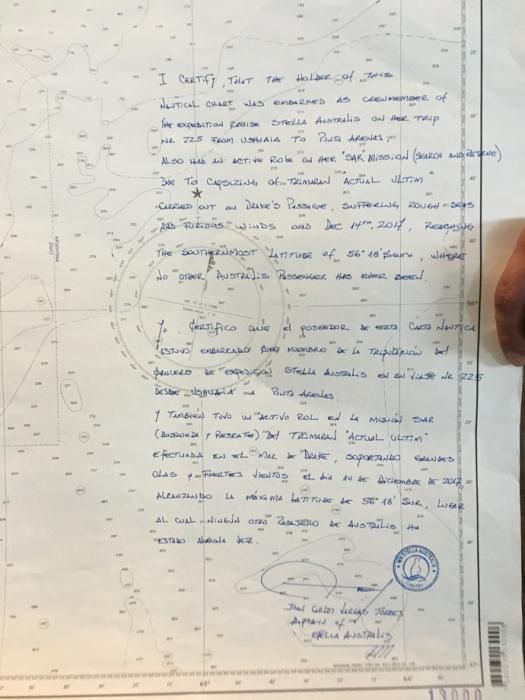 I CERTIFY, THAT THE HOLDER of THIS
NAUTICAL CHART WAS EMBARKED AS CREWMEMBER of
THE EXPEDITION CRUISE STELLA AUSTRALIS ON HER TRIP
NR 225 FROM USHUAIA TO PUNTA ARENAS,
ALSO HAD AN ACTIVE ROLE ON HER "SAR MISSION (SEARCH AND RESCUE)
DUE TO CAPSIZING of TRIMARAN "ACTUAL ULTIM"
CARRIED OUT ON DRAKE'S PASSAGE, SUFFERING ROUGH SEAS
AND FURIOUS WINDS ON DEC 14TH, 2017, REACHING
THE SOUTHERNMOST LATITUDE OF 56° 18' SOUTH, WHERE
NO OTHER AUSTRALIS PASSENGER HAS EVER BEEN.
YO, CERTIFICO QUE el POSEEDOR DE ESTA CARTA NAUTICA
ESTUVO EMBARCADO COMO MIEMBRO DE LA TRIPULACION DEL
CRUCERO DE EXPEDICION STELLA AUSTRALIS EN SU VIAJE NR 225
DESDE USHUAIA A PUNTA ARENAS.
Y TAMBIEN TUVO UN "ACTIVO ROL EN LA MISION SAR
(BUSQUEDA Y RESCATE) DEL TRIMARAN "ACTUAL ULTIM"
EFECTUADA EN EL MAR DE DRAKE, SOPORTANDO GRANDES
OLAS Y FUERTES VIENTOS EL DIA 14 DE DICIEMBRE DE 2017,
ALCANZANDO LA MÁXIMA LATITUD DE 56° 18' SUR, LUGAR
AL CUAL NINGÚN OTRO PASAJERO DE AUSTRALIS HA
ESTADO ALGUNA VEZ.
JUAN CARLOS VARGAS TORRES
CAPTAIN of
STELLA AUSTRALIS